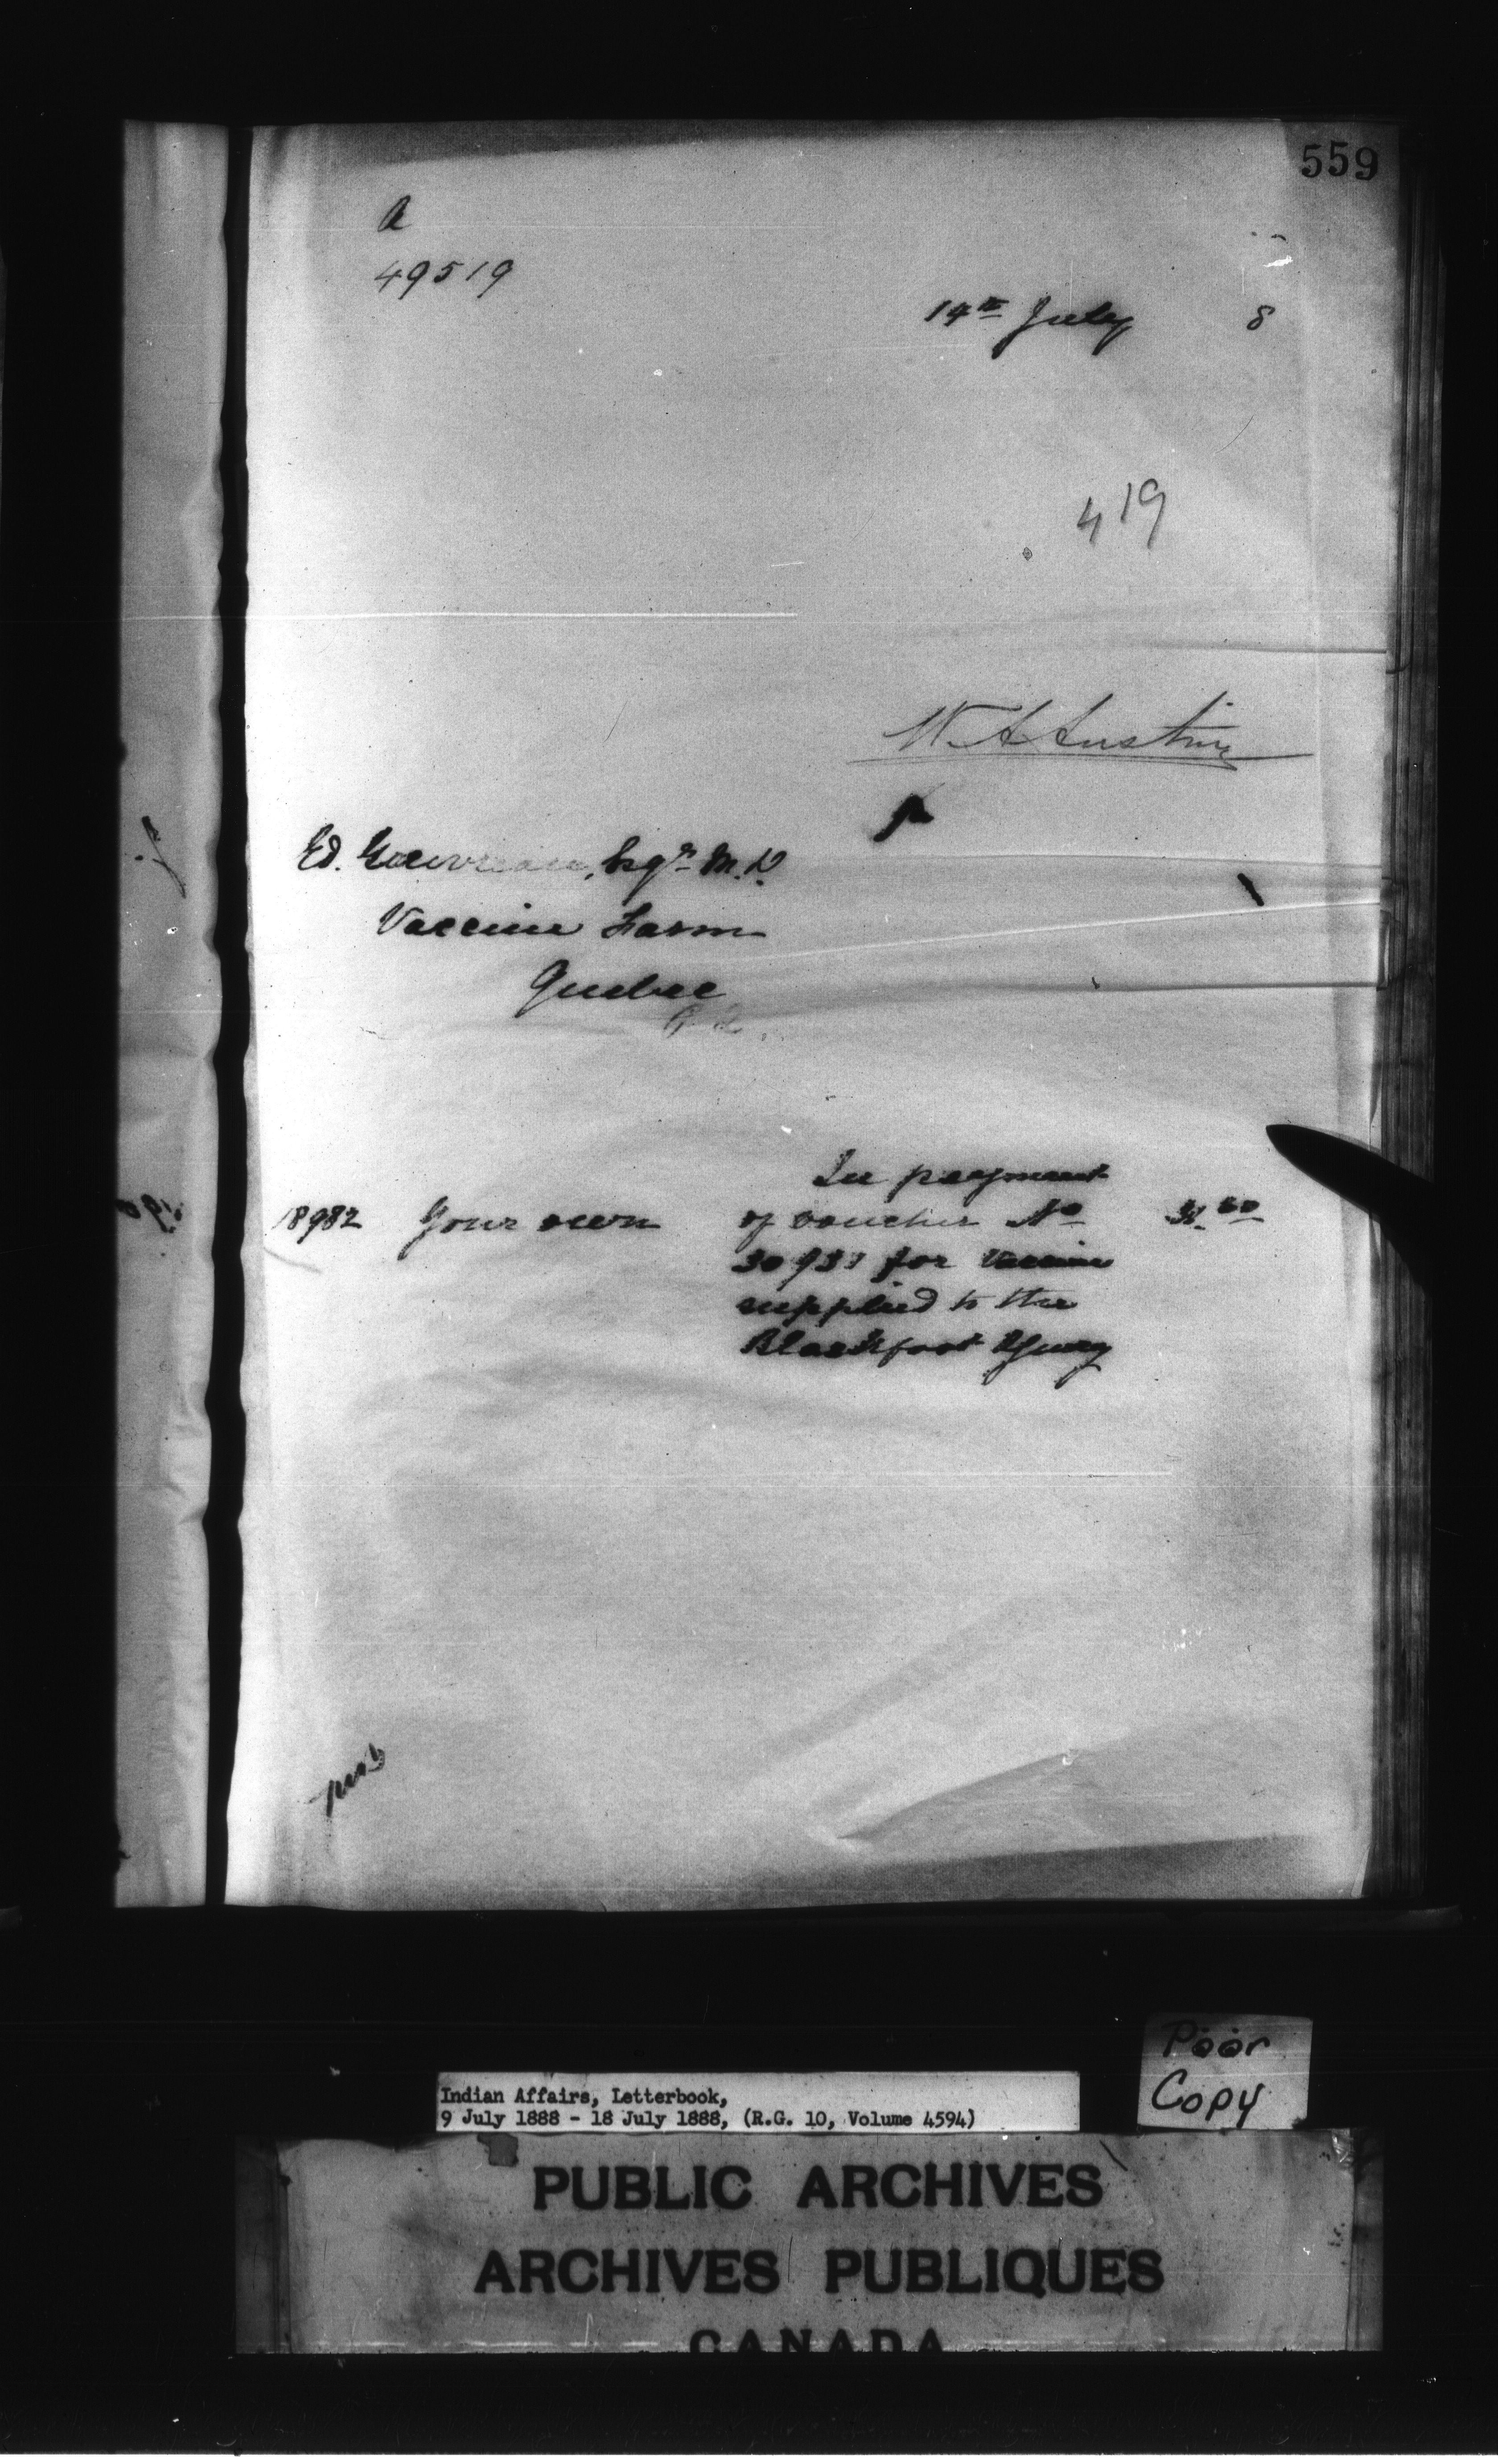 559
A
49519
14th July 8
419
W. A. Austin
Ed. Gauvreau, Esqr M.D.
Vaccine Farm
Quebec
In payment
18982 Your own of voucher No
for Vaccine
supplied to the
Blackfoot Agency
Indian Affairs, Letterbook,
9 July 1888 - 18 July 1888, (R.G. 10, Volume 4594)
Poor
Copy
PUBLIC ARCHIVES
ARCHIVES PUBLIQUES
CANADA